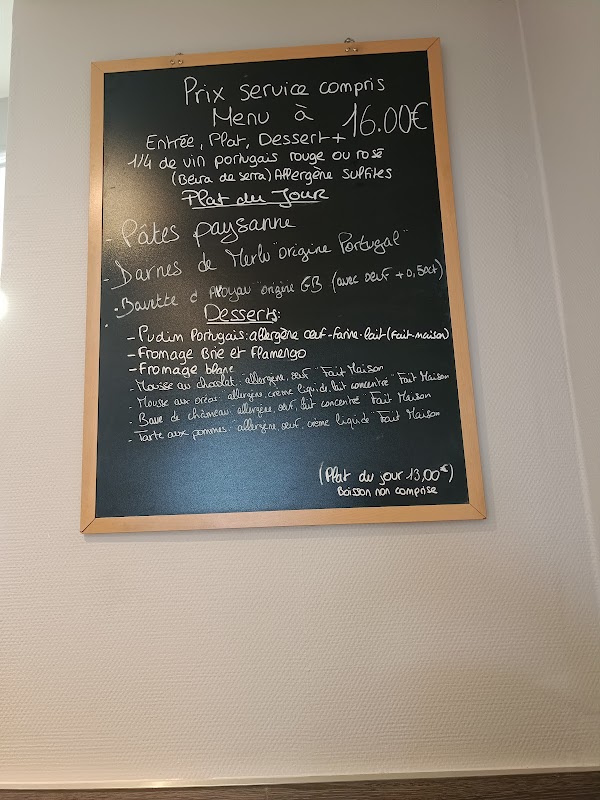 Prix service compris
Menu à 16.00€
Entrée, Plat, Dessert +
1/4 de vin portugais rouge ou rosé
(Beira da serra) Allergène sulfites
Plat du Jour
- Pâtes paysanne
- Darnes de Merlu "origine Portugal"
- Bavette d'Aloyau origine GB (avec oeuf + 0,50ct)
Desserts:
- Pudim Portugais: allergène oeuf-farine-lait (Fait-maison)
- Fromage Brie et Flamengo
- Fromage blanc
- Mousse au chocolat: allergène, oeuf "Fait Maison
- Mousse aux oréos: allergène, crème liquide, lait concentré" Fait Maison
- Bave de chameau: allergène, oeuf, lait concentré Fait Maison
- Tarte aux pommes: "allergène, oeuf, crème liquide" Fait Maison
(Plat du jour 13,00€)
Boisson non comprise